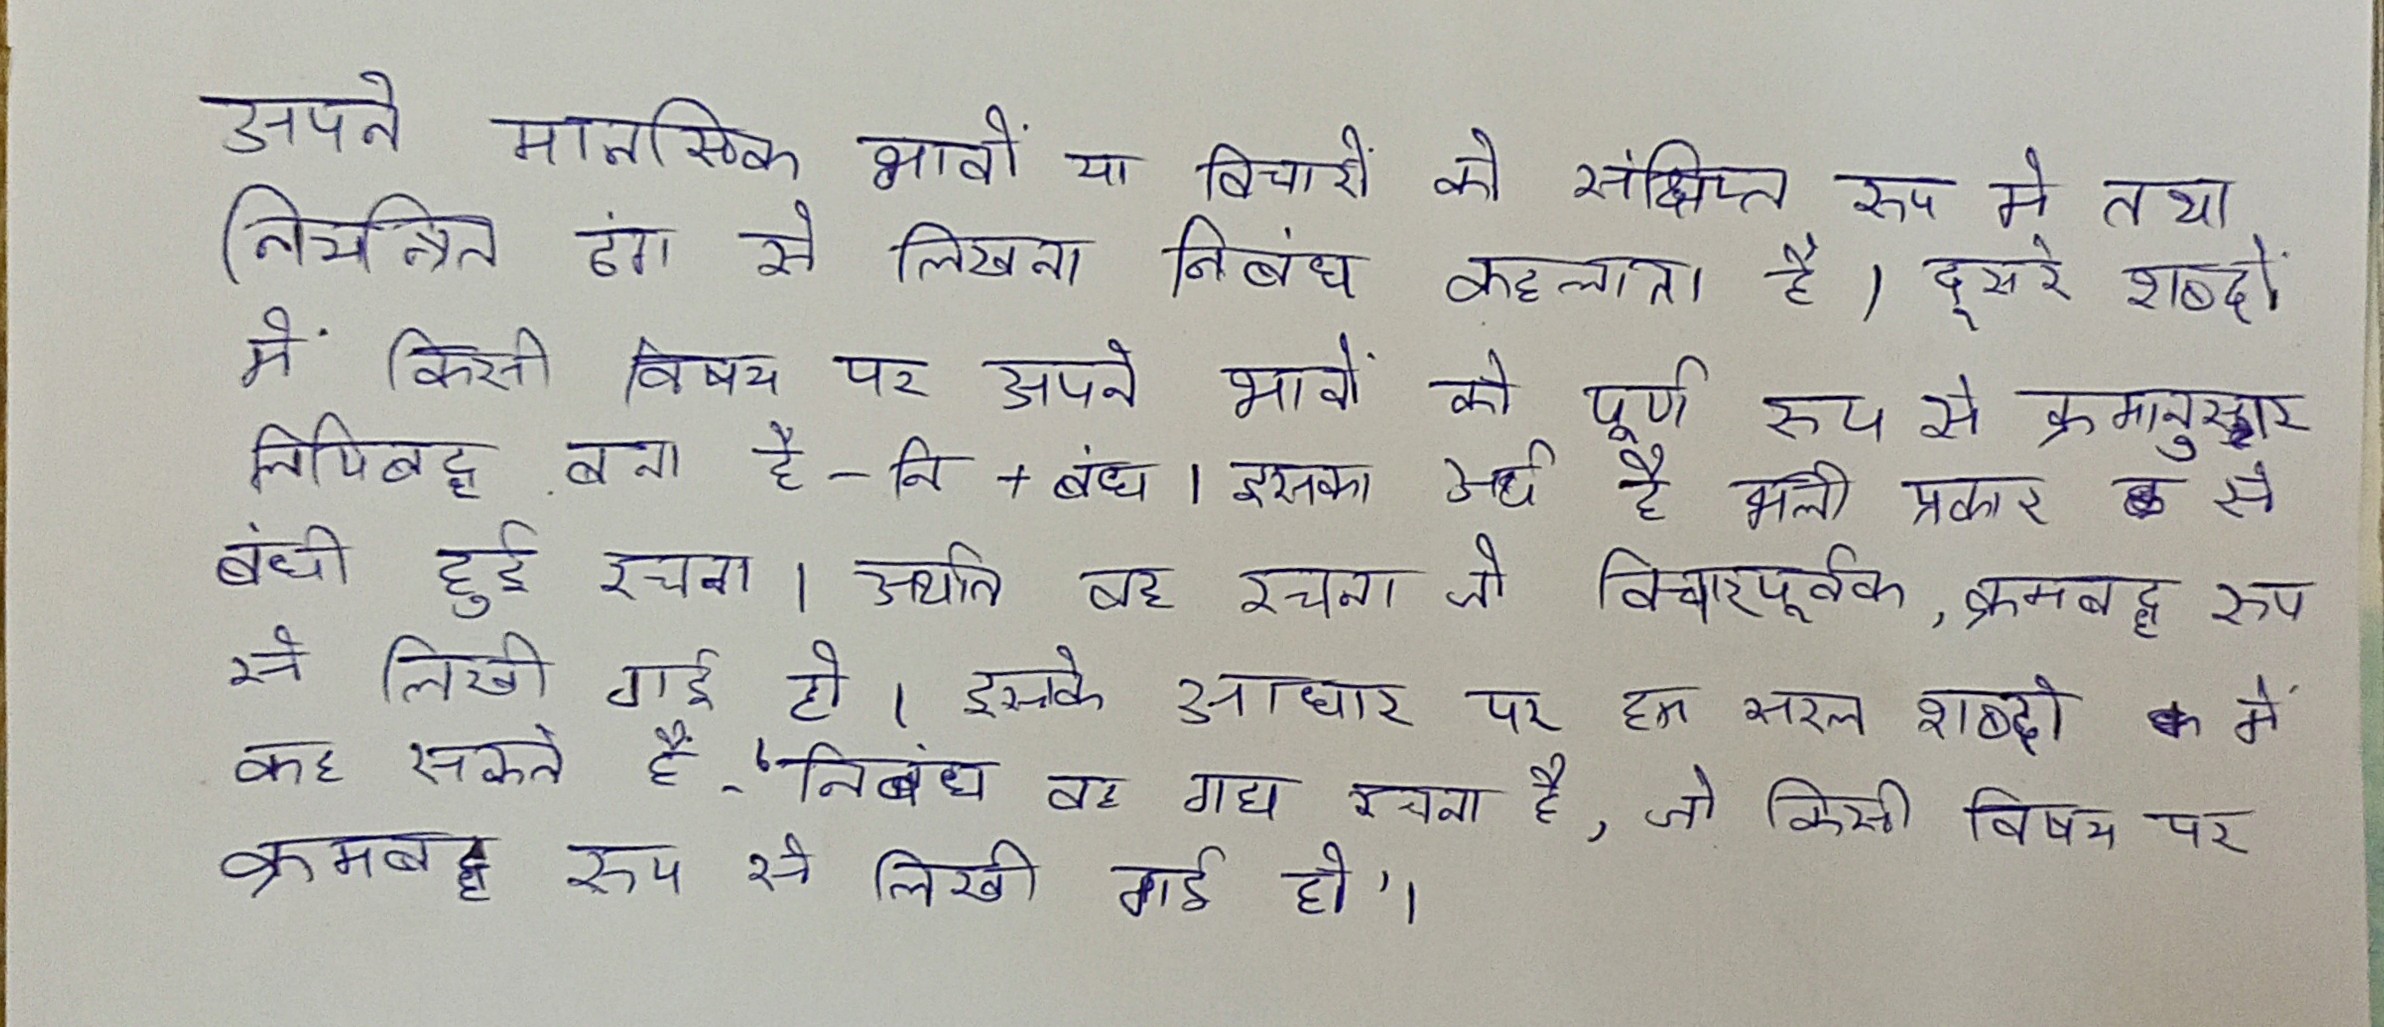 अपने मानसिक भावों या विचारों को संक्षिप्त रूप मे तथा
नियन्त्रित ढंग से लिखना निबंध कहलाता है । दूसरे शब्दों
में किसी विषय पर अपने भावों को पूर्ण रूप से क्रमानुसार
लिपिबद्ध बना है - नि + बंध । इसका अर्थ है भली प्रकार से
बंधी हुई रचना । अर्थात वह रचना जो विचारपूर्वक, क्रमबद्ध रूप
से लिखी गई हो । इसके आधार पर हम सरल शब्दो में
कह सकते हैं - 'निबंध वह गद्य रचना है, जो किसी विषय पर
क्रमबद्ध रूप से लिखी गई हो' ।